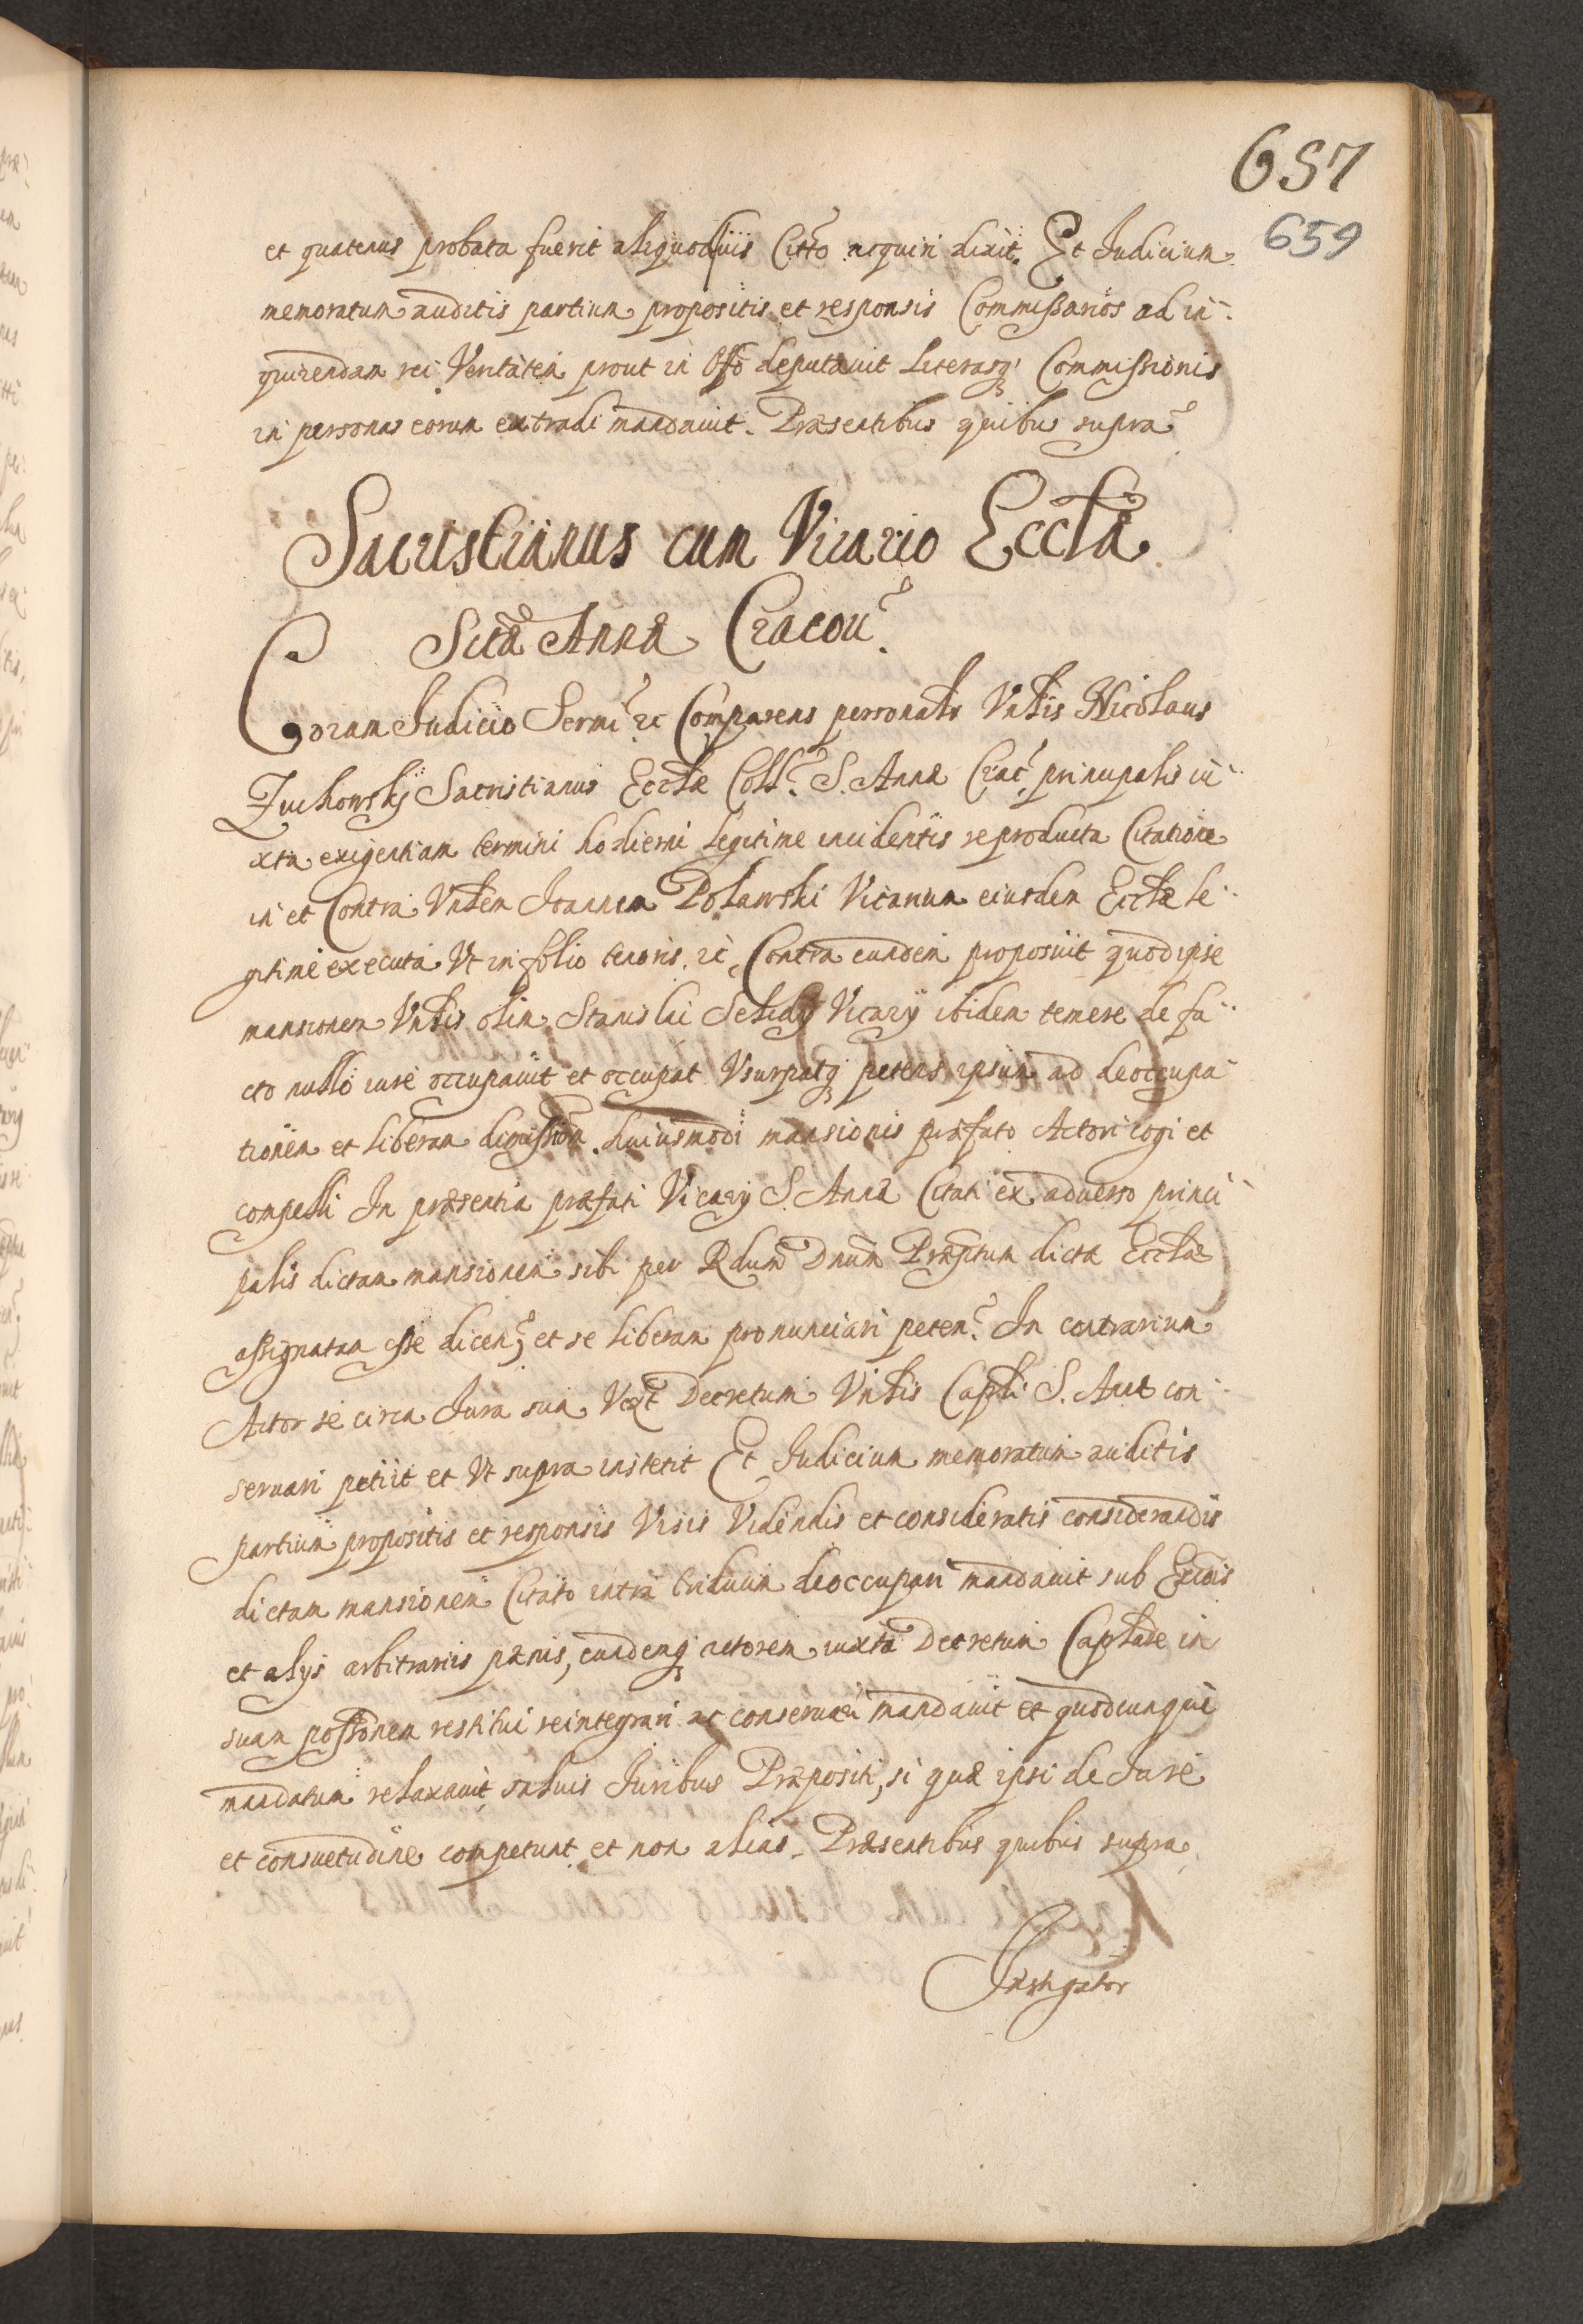 657
659
et quatenus probata fuerit aliquod ius Citto acquiri dixit. Et Judicium
memoratum auditis partium propositis et responsis Commissarios ad in-
quirendam rei Veritatem prout in Offo deputauit Literasq Commissionis
in personas eorum extradi mandauit. Præsentibus quibus supra
Sacristianus cum Vicario Eccłæ
Sctæ Annæ Cracou.
Coram Judicio Sermi rc Comparens personalr Vnłis Nicolaus
Zuchowskij Sacristianus Eccłæ Coll. S. Annæ Crac. principalis iu-
xta exigentiam termini hodierni legitime incidentis reproducta Citatione
in et Contra Vnłem Joannem Polawski Vicarium eiusdem Eccłæ le-
gitime executa Vt in folio tenoris rc, Contra eundem proposuit quod ipse
mansionem Vnłis olim Stanislai Vicarij ibidem temere de fa-
cto nullo iure occupauit et occupat Vsurpatq petens ipsum ad deoccupa-
tionem et liberam dimissiom. huiusmodi mansionis præfato Actori cogi et
compelli In præsentia præfati Vicarij S. Annæ Citati ex aduerso princi-
palis dictam mansionem sibi per Rdum Dnum Præptum dictæ Eccłæ
assignatam esse dicen, et se liberam pronunciari peten. In contrarium
Actor se circa Jura sua Vczt Decretum Vnłis Capłi S. Annæ con-
seruari petiit et Vt supra institit Et Judicium memoratum auditis
partium propositis et responsis Visis Videndis et consideratis considerandis
dictam mansionem Citato intra triduum deoccupari mandauit sub Eccois
et alijs arbitrariis pænis, eundemq actorem iuxta Decretum Capłare in
suam possonem restitui reintegrari ac conseruari mandauit et quodcunque
mandatum relaxauit saluis Juribus Præpositi, si quæ ipsi de Jure
et consuetudine competunt et non alias. Præsentibus quibus supra
Instigator